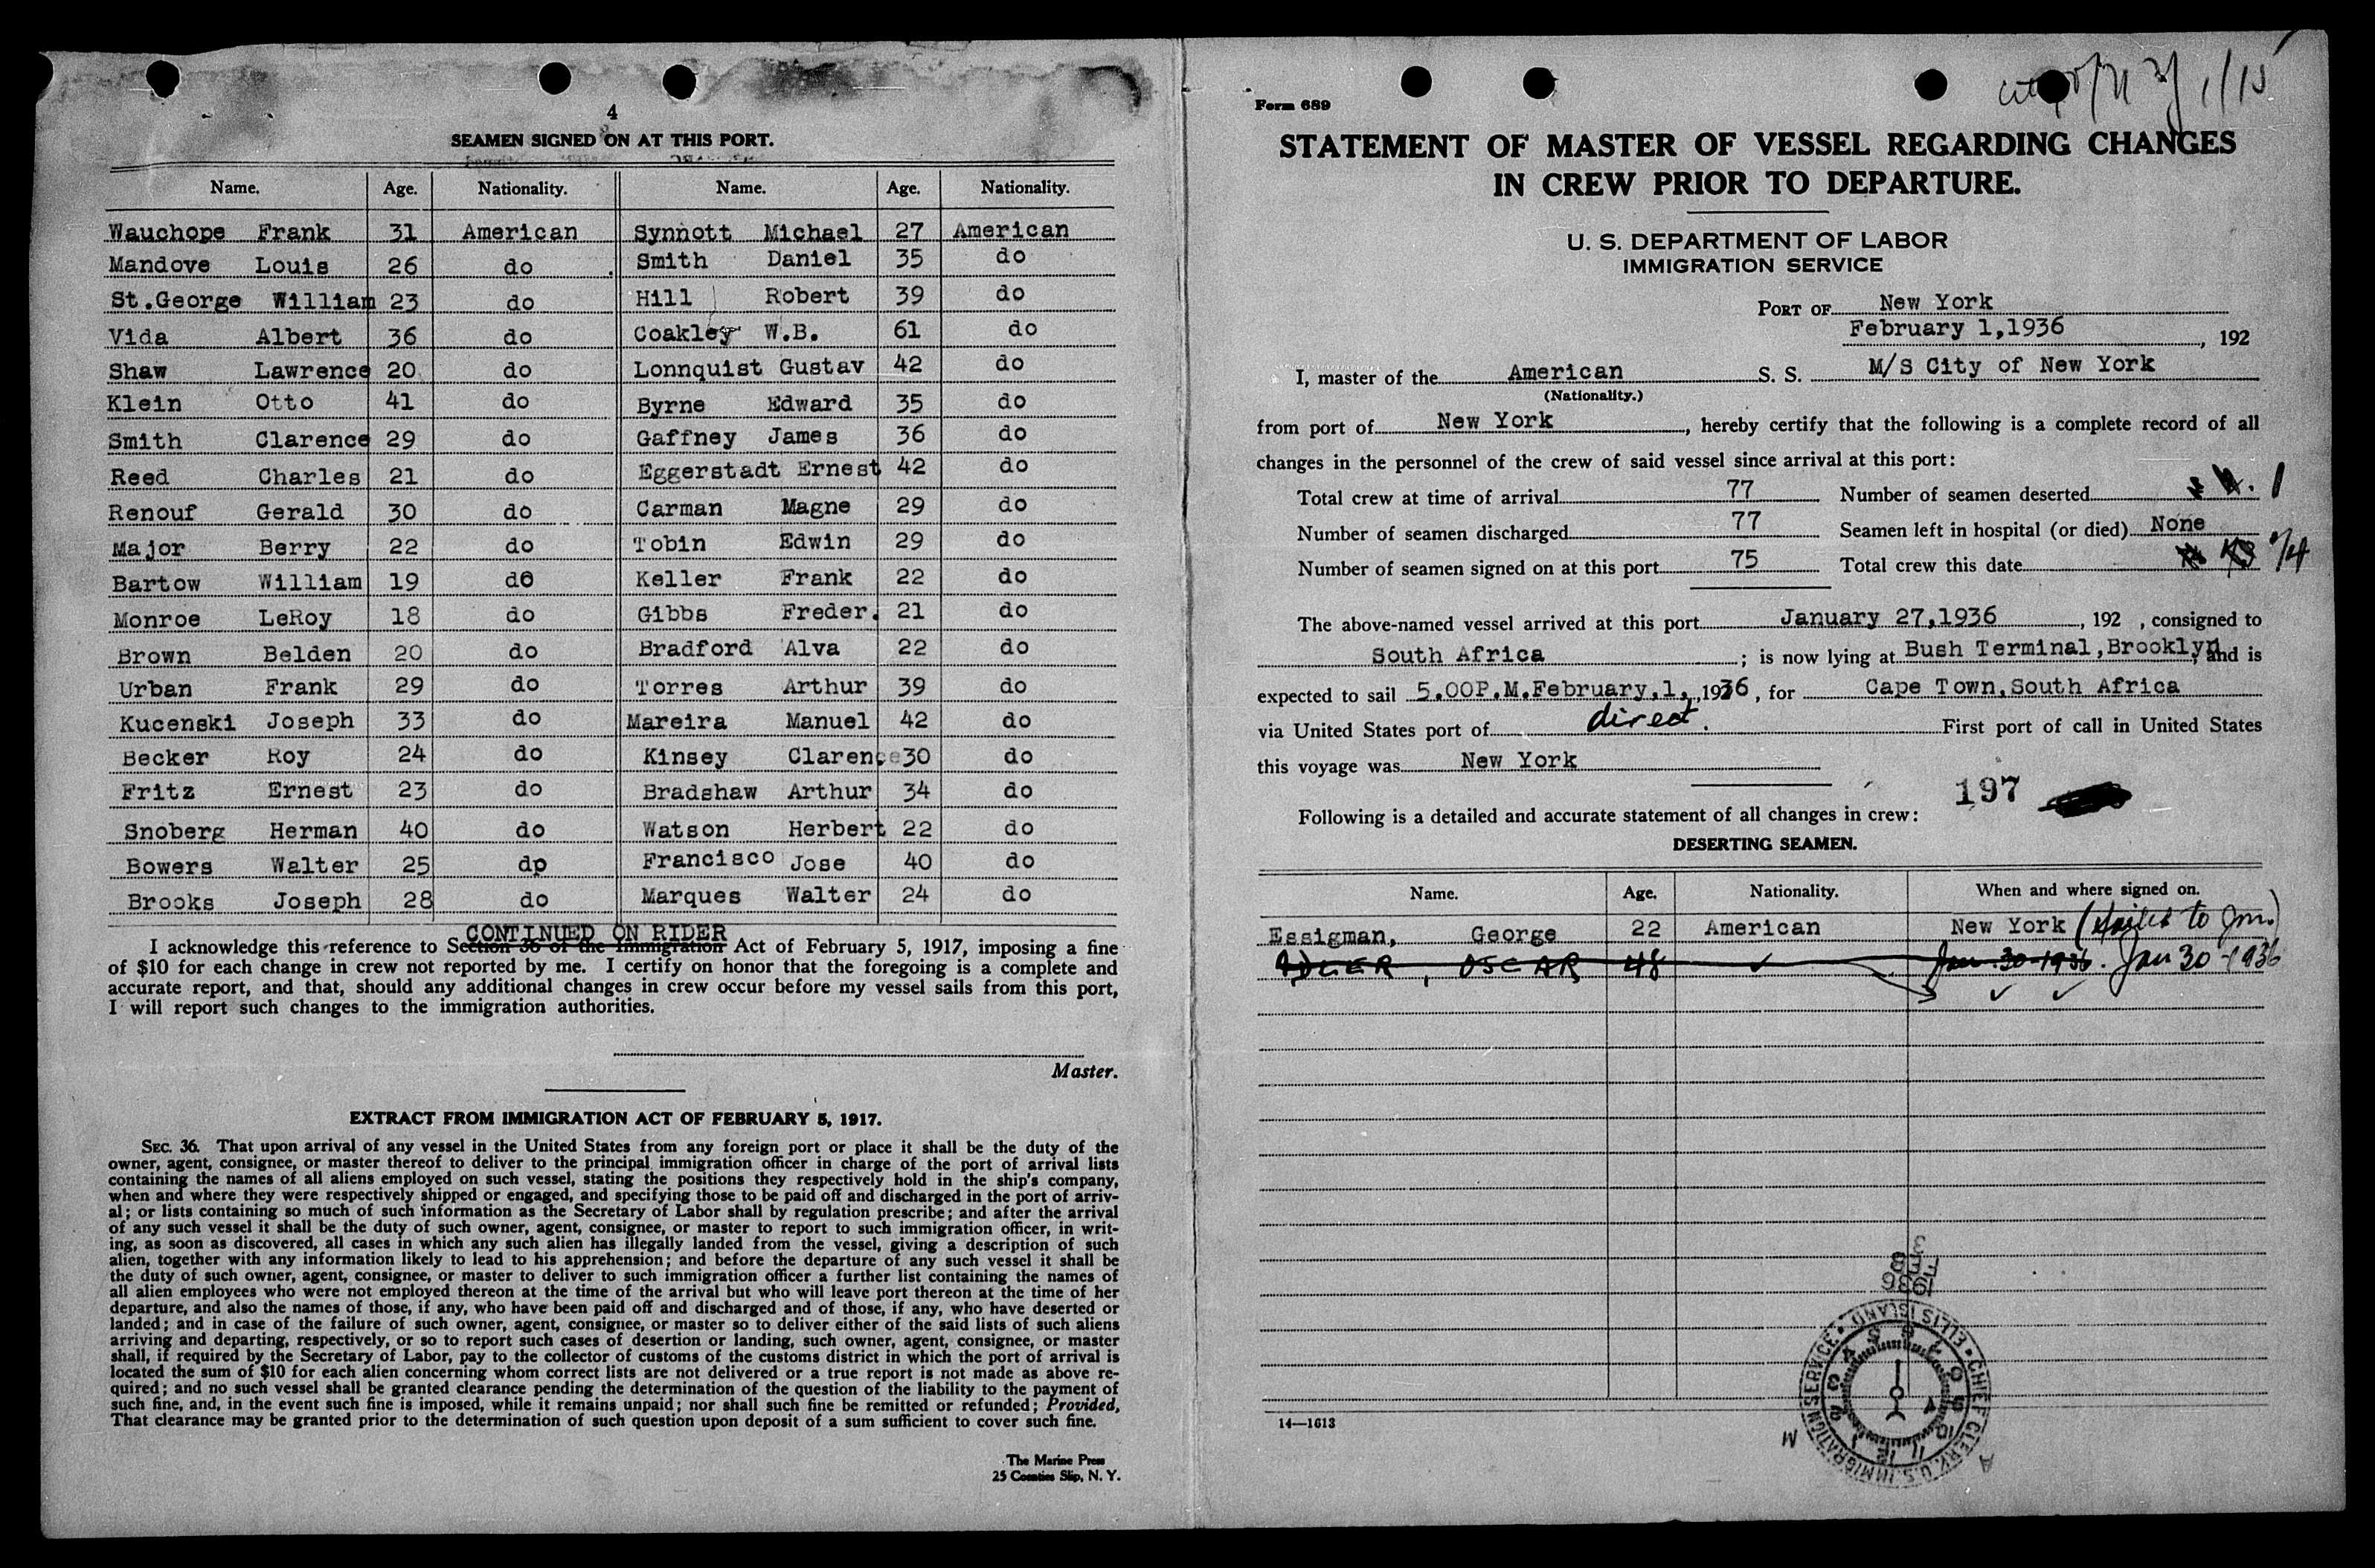 4
SEAMEN SIGNED ON AT THIS PORT.
Name. Age. Nationality. Name. Age. Nationality.
Wauchope Frank 31 American Synnott Michael 27 American
Mandove Louis 26 do Smith Daniel 35 do
St.George William 23 do Hill Robert 39 do
Vida Albert 36 do Coakley W.B. 61 do
Shaw Lawrence 20 do Lonnquist Gustav 42 do
Klein Otto 41 do Byrne Edward 35 do
Smith Clarence 29 do Gaffney James 36 do
Reed Charles 21 do Eggerstadt Ernest 42 do
Renouf Gerald 30 do Carman Magne 29 do
Major Berry 22 do Tobin Edwin 29 do
Bartow William 19 do Keller Frank 22 do
Monroe LeRoy 18 do Gibbs Freder. 21 do
Brown Belden 20 do Bradford Alva 22 do
Urban Frank 29 do Torres Arthur 39 do
Kucenski Joseph 33 do Mareira Manuel 42 do
Becker Roy 24 do Kinsey Clarence 30 do
Fritz Ernest 23 do Bradshaw Arthur 34 do
Snoberg Herman 40 do Watson Herbert 22 do
Bowers Walter 25 dp Francisco Jose 40 do
Brooks Joseph 28 do Marques Walter 24 do
CONTINUED ON RIDER
I acknowledge this reference to Section 36 of the Immigration Act of February 5, 1917, imposing a fine
of $10 for each change in crew not reported by me. I certify on honor that the foregoing is a complete and
accurate report, and that, should any additional changes in crew occur before my vessel sails from this port,
I will report such changes to the immigration authorities.
Master.
EXTRACT FROM IMMIGRATION ACT OF FEBRUARY 5, 1917.
SEC. 36. That upon arrival of any vessel in the United States from any foreign port or place it shall be the duty of the
owner, agent, consignee, or master thereof to deliver to the principal immigration officer in charge of the port of arrival lists
containing the names of all aliens employed on such vessel, stating the positions they respectively hold in the ship's company,
when and where they were respectively shipped or engaged, and specifying those to be paid off and discharged in the port of arriv-
al; or lists containing so much of such information as the Secretary of Labor shall by regulation prescribe; and after the arrival
of any such vessel it shall be the duty of such owner, agent, consignee, or master to report to such immigration officer, in writ-
ing, as soon as discovered, all cases in which any such alien has illegally landed from the vessel, giving a description of such
alien, together with any information likely to lead to his apprehension; and before the departure of any such vessel it shall be
the duty of such owner, agent, consignee, or master to deliver to such immigration officer a further list containing the names of
all alien employees who were not employed thereon at the time of the arrival but who will leave port thereon at the time of her
departure, and also the names of those, if any, who have been paid off and discharged and of those, if any, who have deserted or
landed; and in case of the failure of such owner, agent, consignee, or master so to deliver either of the said lists of such aliens
arriving and departing, respectively, or so to report such cases of desertion or landing, such owner, agent, consignee, or master
shall, if required by the Secretary of Labor, pay to the collector of customs of the customs district in which the port of arrival is
located the sum of $10 for each alien concerning whom correct lists are not delivered or a true report is not made as above re-
quired; and no such vessel shall be granted clearance pending the determination of the question of the liability to the payment of
such fine, and, in the event such fine is imposed, while it remains unpaid; nor shall such fine be remitted or refunded; Provided,
That clearance may be granted prior to the determination of such question upon deposit of a sum sufficient to cover such fine.
The Marine Press
25 Coenties Slip, N. Y.
Form 689
STATEMENT OF MASTER OF VESSEL REGARDING CHANGES
IN CREW PRIOR TO DEPARTURE.
U. S. DEPARTMENT OF LABOR
IMMIGRATION SERVICE
PORT OF New York
February 1,1936, 192
I, master of the American S. S. M/S City of New York
(Nationality.)
from port of New York, hereby certify that the following is a complete record of all
changes in the personnel of the crew of said vessel since arrival at this port:
Total crew at time of arrival 77 Number of seamen deserted 1
Number of seamen discharged 77 Seamen left in hospital (or died) None
Number of seamen signed on at this port 75 Total crew this date
The above-named vessel arrived at this port January 27,1936, 192 , consigned to
South Africa; is now lying at Bush Terminal,Brooklyn, and is
expected to sail 5.00P.M.February,1,,1936, for Cape Town,South Africa
via United States port of direct. First port of call in United States
this voyage was New York
197
Following is a detailed and accurate statement of all changes in crew:
DESERTING SEAMEN.
Name. Age. Nationality. When and where signed on.
Essigman, George 22 American New York (failed to Jn.)
ADLER, OSCAR 48 ✓ Jan. 30-1936. Jan 30-1936
✓ ✓
1936
FEB
3
CHIEF CLERK, U.S. IMMIGRATION SERVICE • ELLIS ISLAND •
14—1613